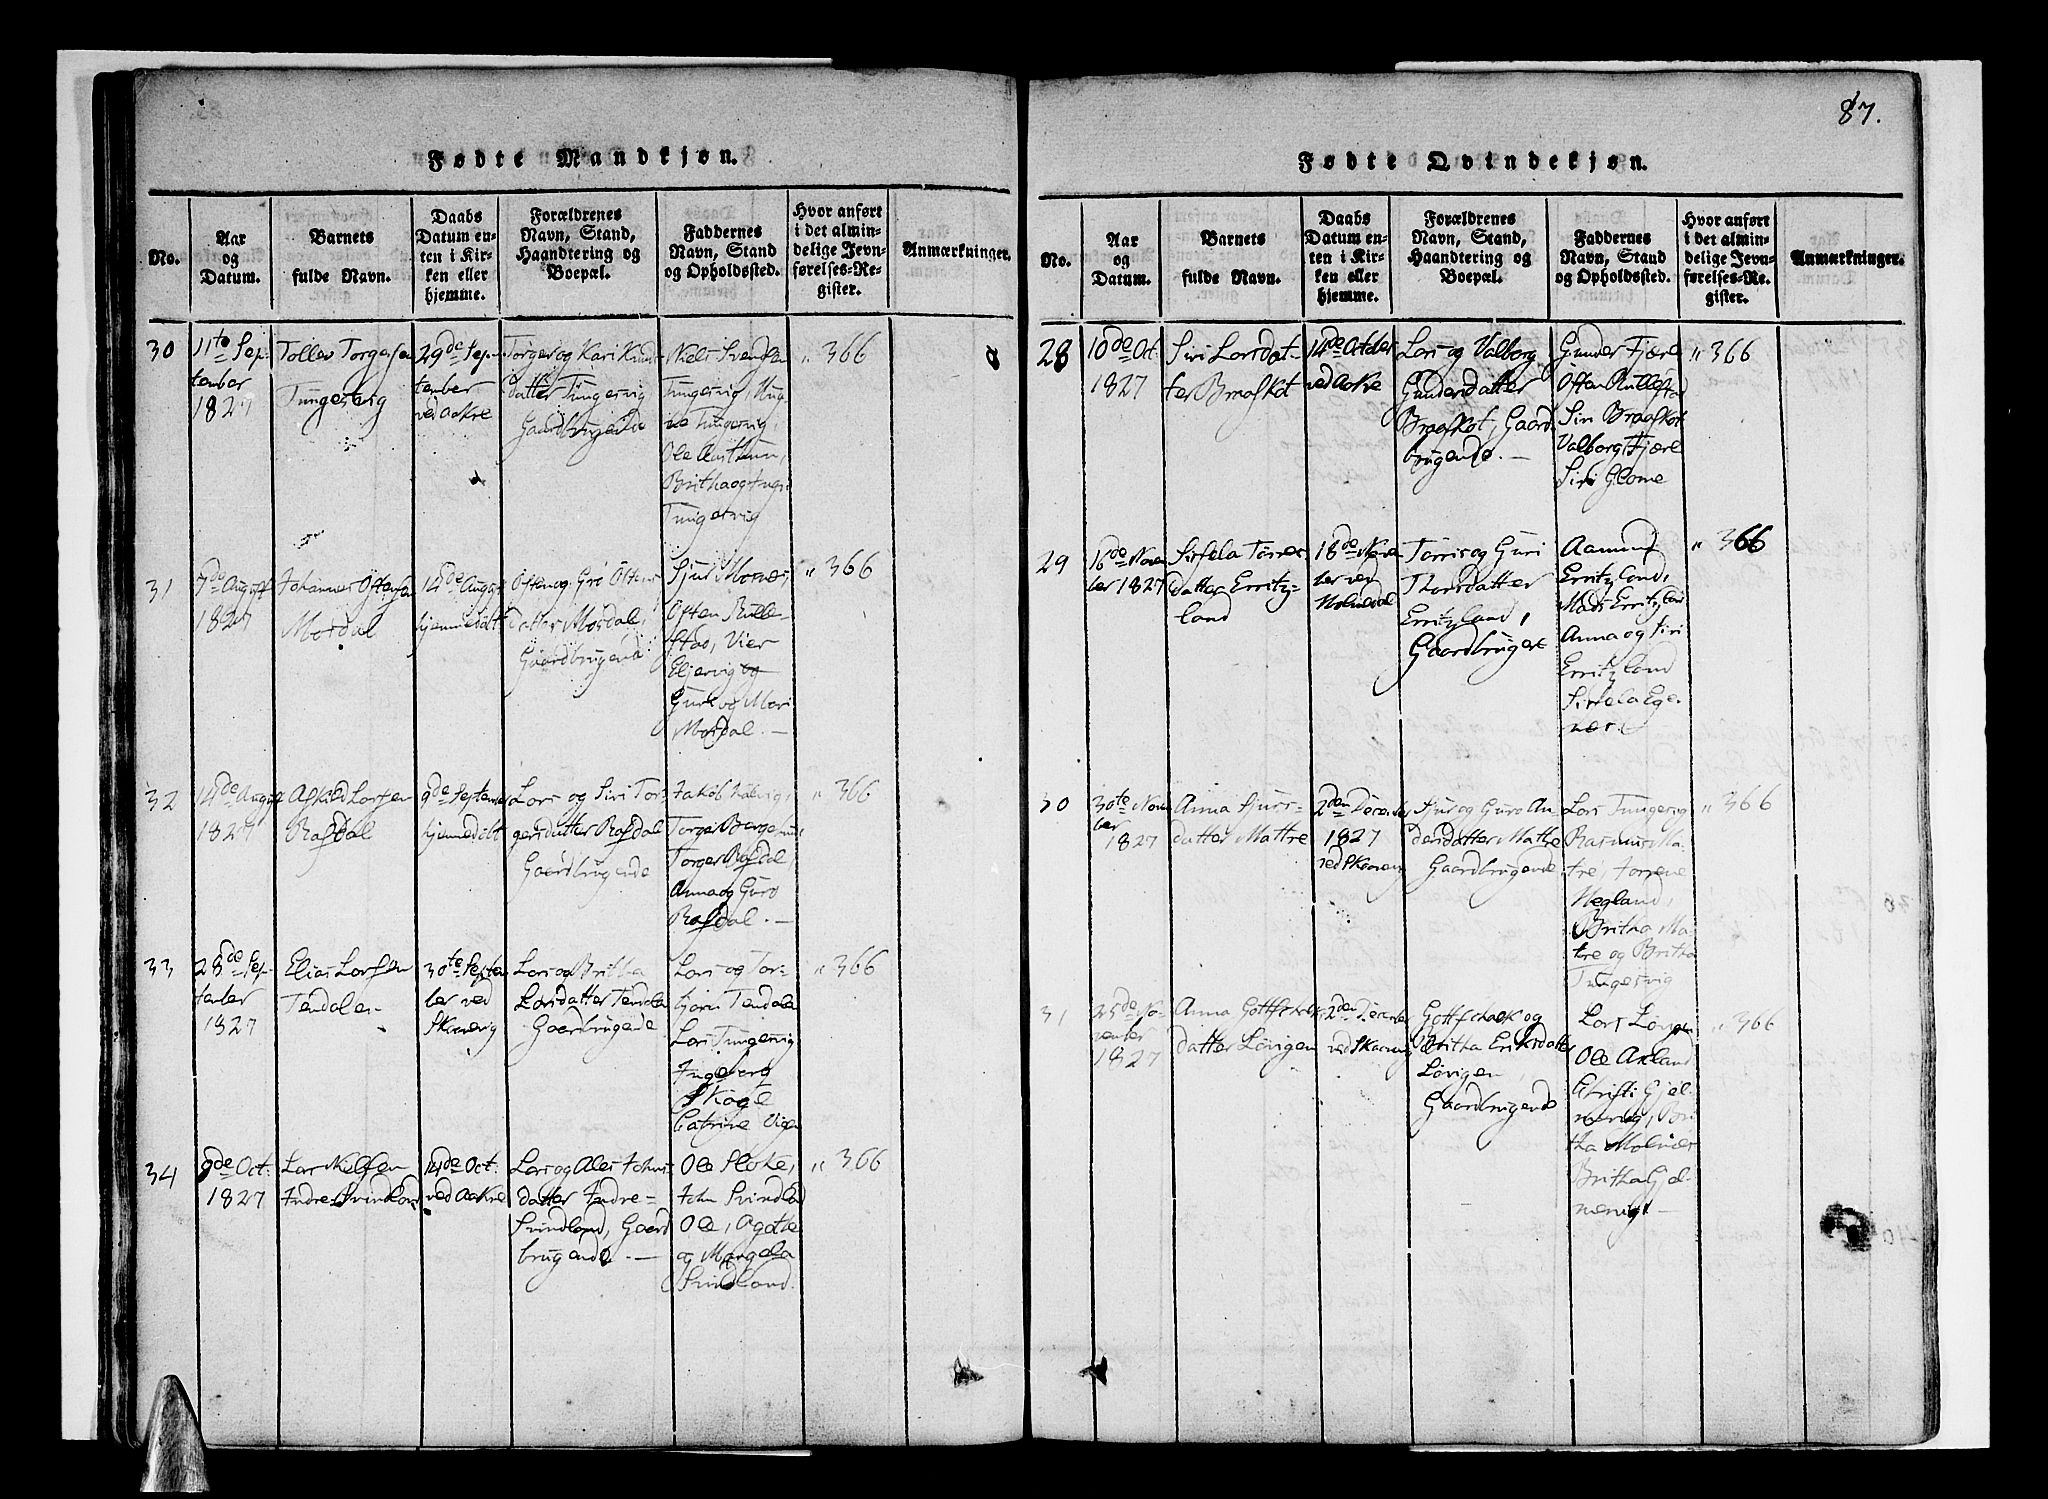 87.
Fødte Mandkjøn.
No.
Aar
og
Datum.
Barnets
fulde Navn.
Daabs
Datum en-
ten i Kir-
ken eller
hjemme.
Forældrenes
Navn, Stand,
Haandtering og
Boepæl.
Faddernes
Navn, Stand
og Opholdssted.
Hvor anført
i det almin-
delige Jevn-
førelses-Re-
gister.
Anmærkninger.
30
11te Sep-
tember
1827
Tollev Torgersen
Tungesvig
29de Sep-
tember
ved Aakre
Torger og Kari Knuds-
datter Tungesvig
Gaardbrugende
Niels Svendsen
Tungesvig,
Tungesvig,
Ole
Britha og
Tungesvig
" 366
31
7de August
1827
Johannes Østensen
Mosdal
12de August
hjemmedøbt
Østen og Gro Østens-
datter Mosdal,
Gaardbrugende
Sjur Mornes,
Østen Rulle-
stad, Vier
Eljervig og
Guri og Mari
Mosdal. —
" 366
32
14de August
1827
Askild Larsen
Rafdal
9de September
hjemmedøbt
Lars og Siri Tor-
gersdatter Rafdal
Gaardbrugende
Jakob
Torger
Torger Rafdal,
Anna og Guro
Rafdal. —
" 366
33
28de Sep-
tember
1827
Elias Larsen
Tendalen
30te Septem-
ber ved
Skaanevig
Lars og Britha
Larsdatter Tendalen
Gaardbrugende
Lars og Tor-
bjørn Tendalen
Lars Tungesvig
Ingeborg
Skoge
Catrine Vigen
" 366
34
9de Oct.
1827
Lars Nilssen
Indre Svindland
14de Oct.
ved Aakre
Lars og Ales Johns-
datter Indre-
Svindland, Gaard-
brugende. —
Ole
John Svindland
Ole, Agathe
og Margela
Svindland.
" 366
Fødte Qvindekjøn.
No.
Aar
og
Datum.
Barnets
fulde Navn.
Daabs
Datum en-
ten i Kir-
ken eller
hjemme.
Forældrenes
Navn, Stand,
Haandtering og
Boepæl.
Faddernes
Navn, Stand
og Opholdssted.
Hvor anført
i det almin-
delige Jevn-
førelses-Re-
gister.
Anmærkninger.
28
10de Oct.
1827
Siri Larsdat-
ter Braaskot
14de October
ved Aakre
Lars og Valborg
Gundersdatter
Braaskot, Gaard-
brugende. —
Gunder Fjære
Østen Rullestad
Siri Braaskot
Valborg Fjære
Siri Glome
" 366
29
16de Novem-
ber 1827
Sissela Tørres-
datter Erritz-
land
18de Novem-
ber ved
Holmedal
Tørris og Guri
Thorsdatter
Erritzland,
Gaardbruger
Aamund
Erritzland,
Mads Erritzland
Anna og Siri
Erritzland
Sissela Ege-
næs.
" 366
30
30te Novem-
ber
1827
Anna Sjurs-
datter Mattre
2den December
1827
ved Skaanevig
Sjur og Guro An-
dersdatter Mattre
Gaardbrugende
Lars Tungesvig
Rasmus Ma-
tre,
Negland,
Britha Ma-
tre og Britha
Tungesvig
" 366
31
25de No-
vember
1827
Anna Gottschalks-
datter Løvigen
2den December
ved Skaanevig
Gottschalk og
Britha Eriksdatter
Løvigen,
Gaardbrugende
Lars Løvigen
Ole Axland
Christi Gjel-
mervig, Bri-
tha Molnæs
Britha Gjel-
mervig. —
" 366